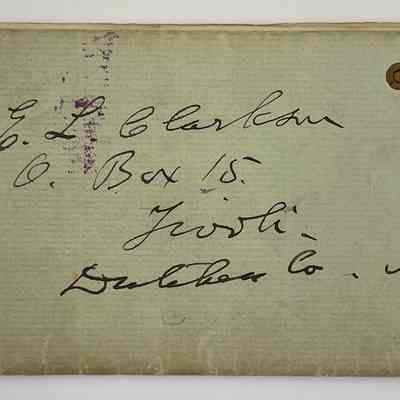 E. L. Clarkson
O. Box 15.
Tivoli.
Dutchess Co.